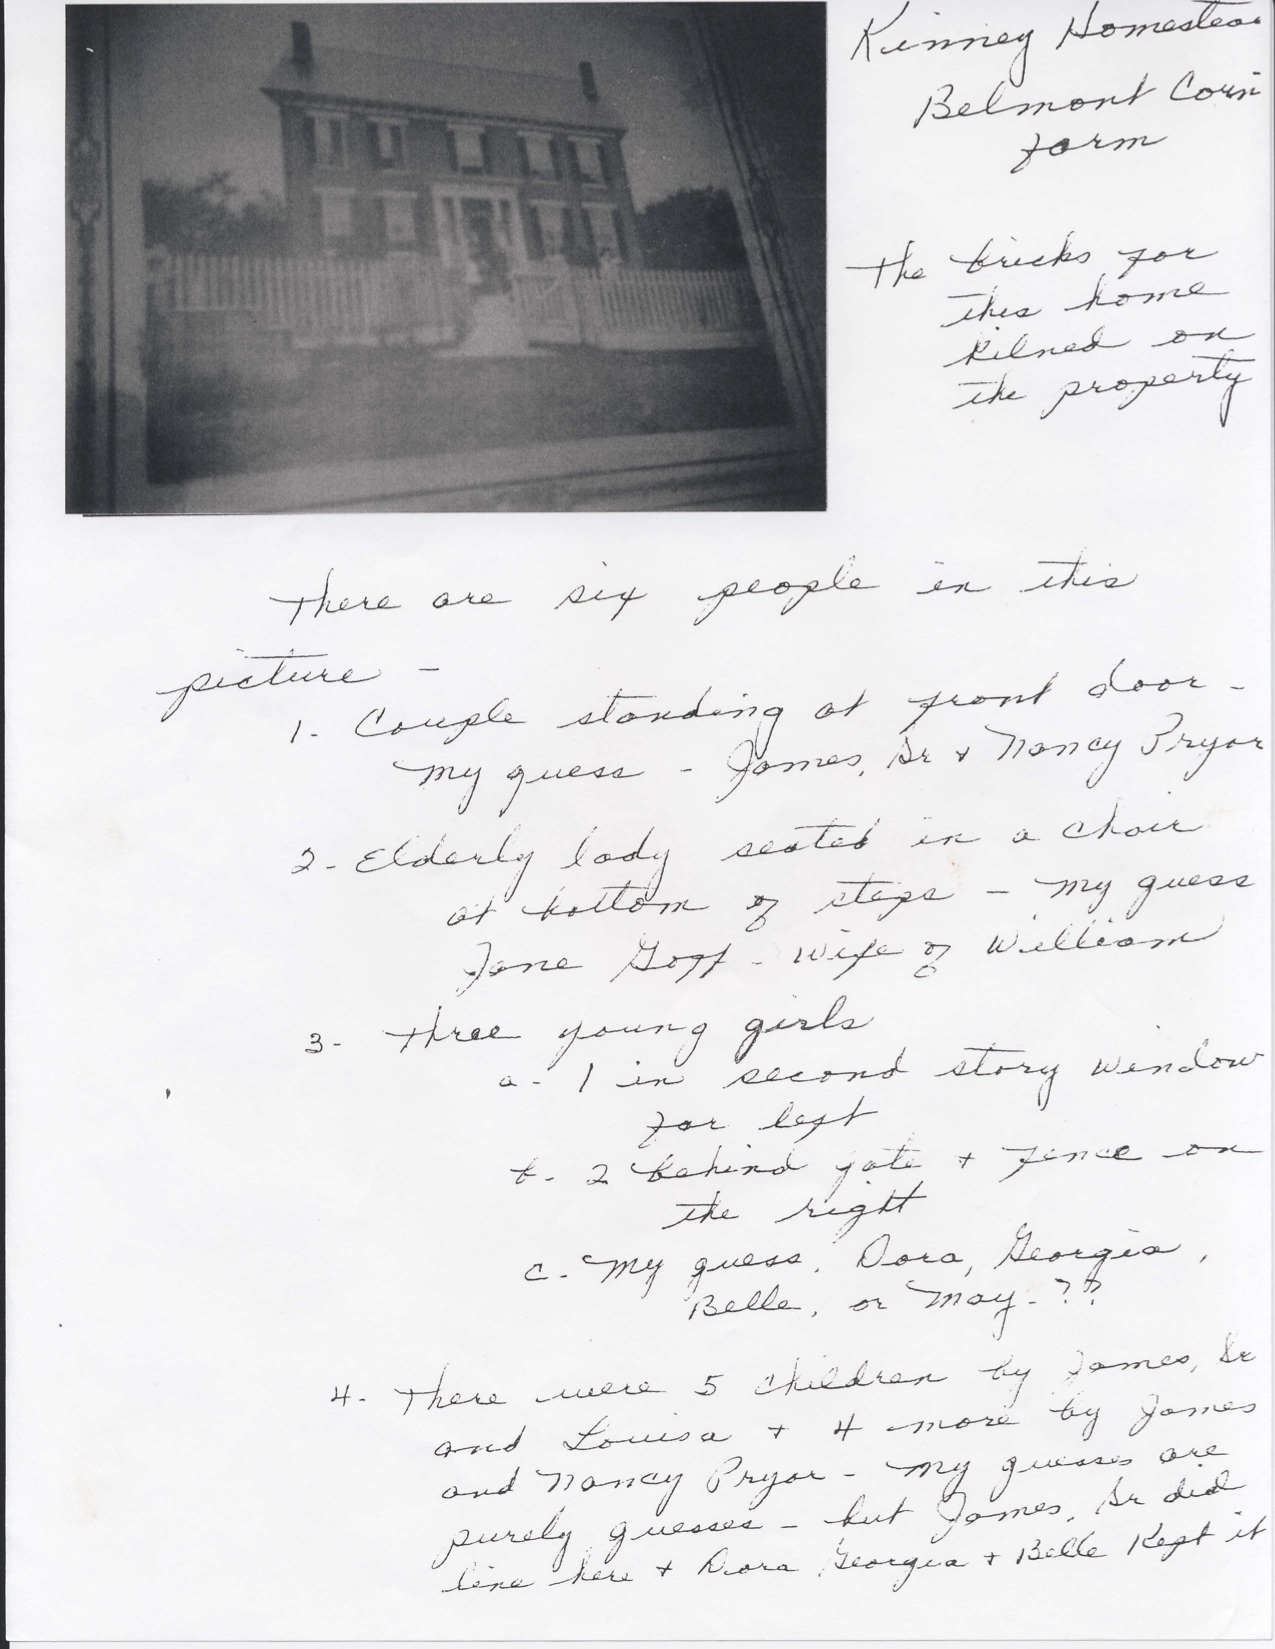 Kinney Homestea
Belmont Corn
farm
The bricks for
this home
kilned on
the property
There are six people in this
picture -
1. Couple standing at front door -
My guess - James, Sr + Nancy Pryor
2- Elderly lady seated in a chair
at bottom of steps - My guess
Jane Goff - wife of William
3- Three young girls
a- 1 in second story window
far left
b- 2 behind gate + fence on
the right
c- My guess, Dora, Georgia,
Belle, or May-??
4- There were 5 children by James, Sr
and Louisa + 4 more by James
and Nancy Pryor - My guesses are
purely guesses - but James, Sr did
live here + Dora Georgia + Belle Kept it